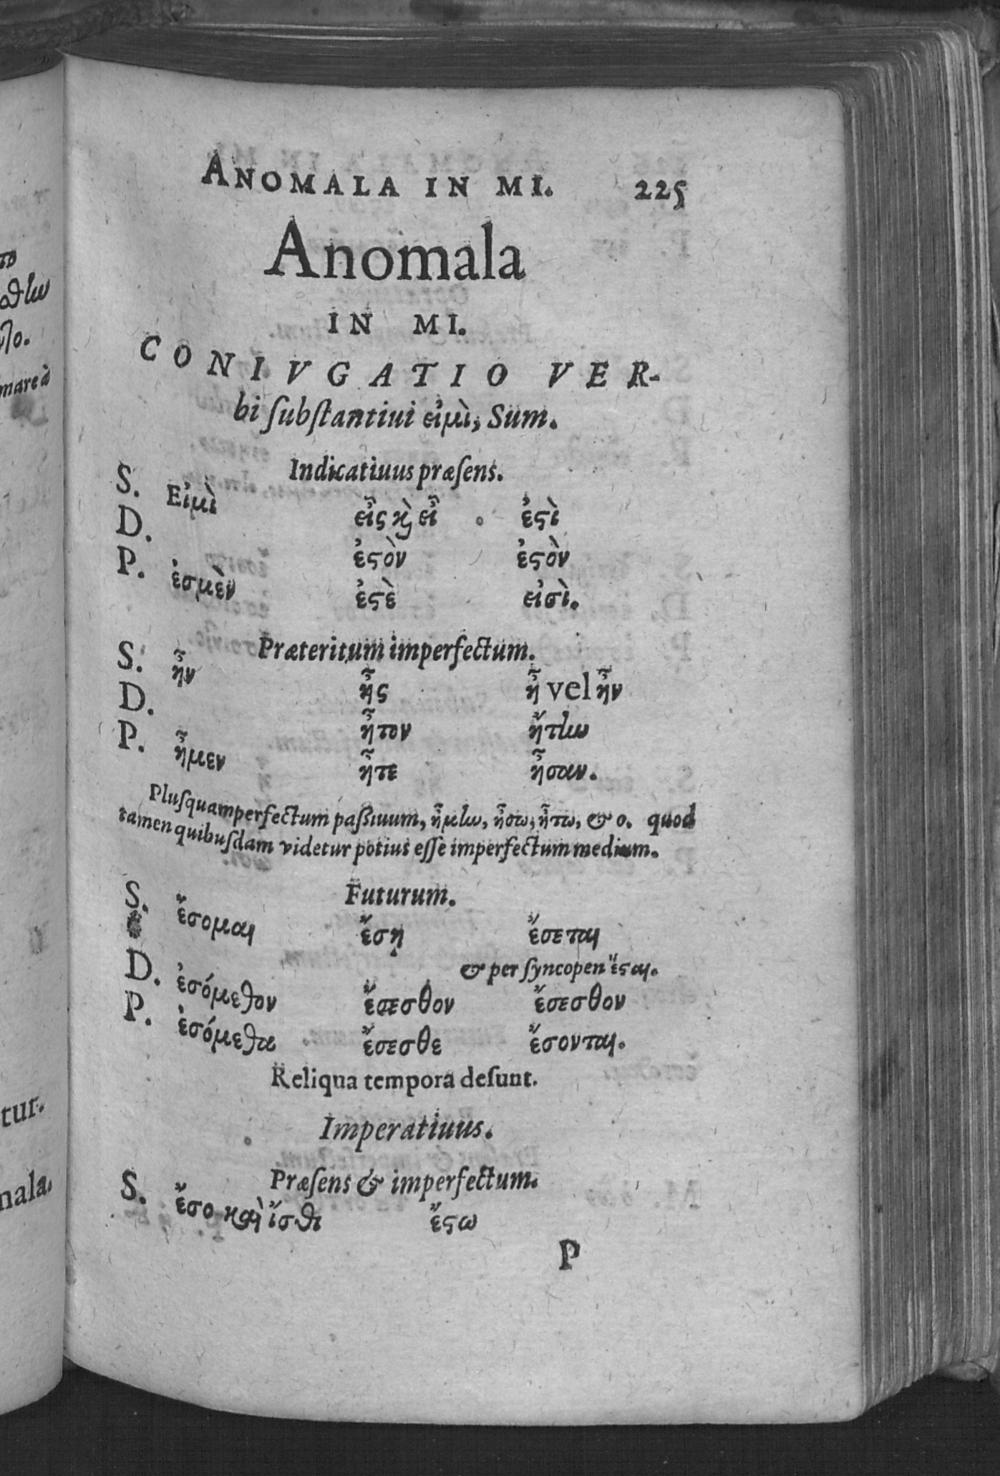 ANOMALA IN MI. 225
Anomala
IN MI.
CONIVGATIO VER-
bi ſubſtantiui εἰμὶ, Sum.
Indicatiuus præſens.
S. Εἰμὶ εἶς καὶ εἶ ἐςὶ
D. ἐςὸν ἐςὸν
P. ἐσμὲν ἐςὲ εἰσὶ.
Præteritum imperfectum.
S. ἦν ἦς ἦ vel ἦν
D. ἦτον ἤτην
P. ἦμεν ἦτε ἦσαν.
Pluſquamperfectum paſsiuum, ἤμην, ἦσο, ἦτο, &c. quod
tamen quibuſdam videtur potius eſſe imperfectum medium.
Futurum.
S. ἔσομαι ἔσῃ ἔσεται
& per ſyncopen ἔςαι.
D. ἐσόμεθον ἔσεσθον ἔσεσθον
P. ἐσόμεθα ἔσεσθε ἔσονται.
Reliqua tempora deſunt.
Imperatiuus.
Præſens & imperfectum.
S. ἔσο καὶ ἴσθι ἔςω
P